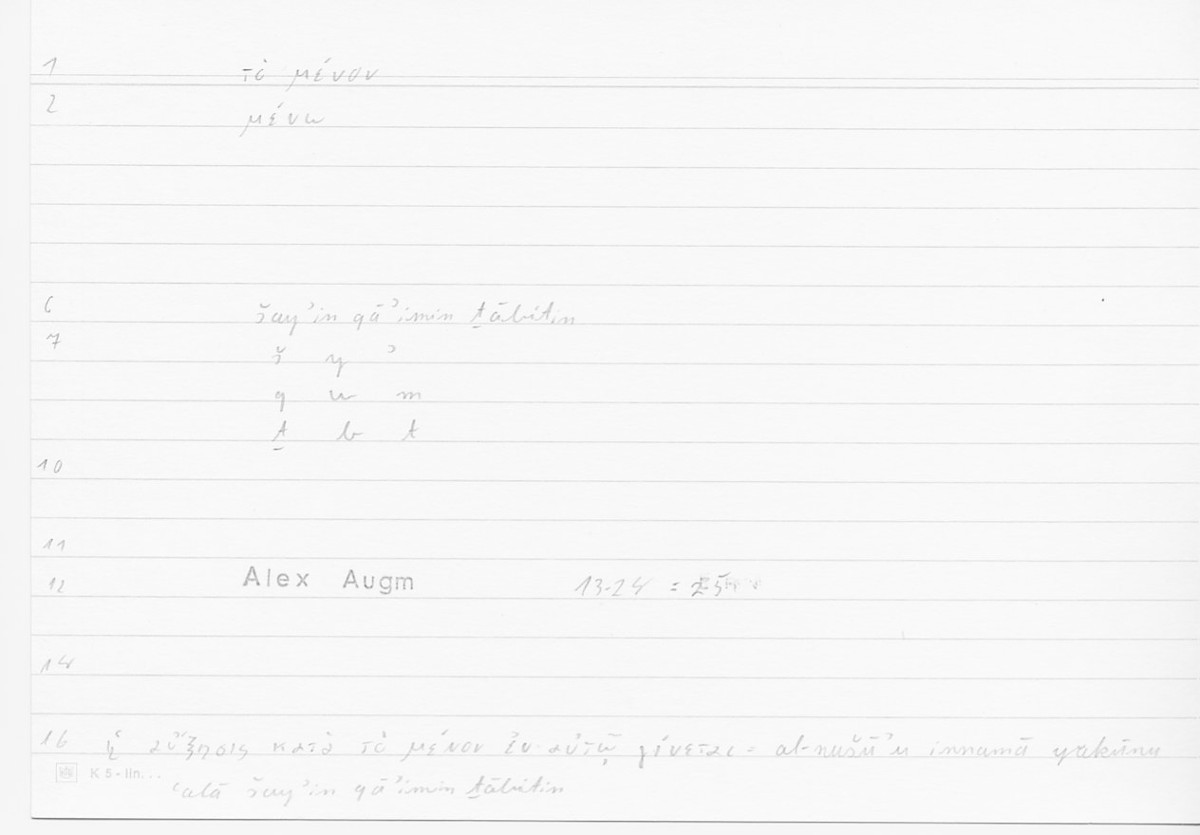 1 τὸ μένον
2 μένω
6 šayʾin qāʾimin ṯābitin
7 š y ʾ
q w m
ṯ b t
10
11
12 Alex Augm 13-24 =
14
16 ἡ αὔξησις κατὰ τὸ μένον ἐν αὐτῷ γίνεται = al-nušūʾu innamā yakūnu
K 5 - lin...
ʿalā šayʾin qāʾimin ṯābitin